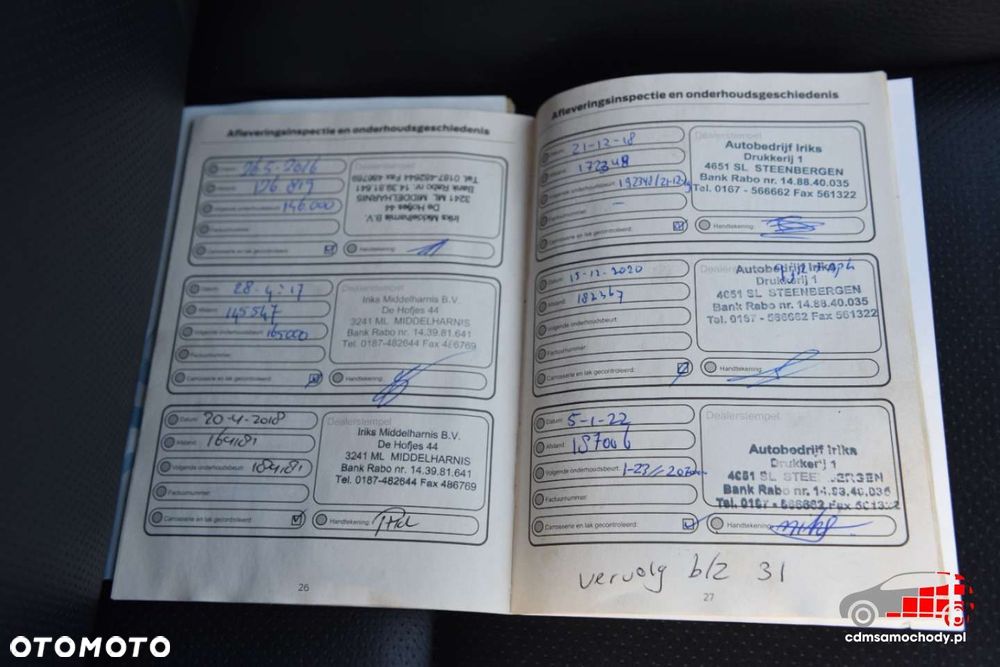 Afleveringsinspectie en onderhoudsgeschiedenis
Datum: 26.5-2016
Afstand: 126819
146.000
Factuurnummer:
Carrosserie en lak gecontroleerd:
Dealerstempel
Iriks Middelharnis B.V.
De Hofjes 44
3241 ML MIDDELHARNIS
Bank Rabo nr. 14.39.81.641
Tel. 0187-482644 Fax 486769
Handtekening:
Datum: 28-4-17
Afstand: 145547
Volgende onderhoudsbeurt: 165000
Factuurnummer:
Carrosserie en lak gecontroleerd:
Dealerstempel
Iriks Middelharnis B.V.
De Hofjes 44
3241 ML MIDDELHARNIS
Bank Rabo nr. 14.39.81.641
Tel. 0187-482644 Fax 486769
Handtekening:
Datum: 20-4-2018
Afstand: 164181
Volgende onderhoudsbeurt: 184181
Factuurnummer:
Carrosserie en lak gecontroleerd:
Dealerstempel
Iriks Middelharnis B.V.
De Hofjes 44
3241 ML MIDDELHARNIS
Bank Rabo nr. 14.39.81.641
Tel. 0187-482644 Fax 486769
Handtekening:
26
Afleveringsinspectie en onderhoudsgeschiedenis
Datum: 21-12-18
Afstand: 172348
Volgende onderhoudsbeurt: 192348/21-12-19
Factuurnummer: -
Carrosserie en lak gecontroleerd:
Dealerstempel
Autobedrijf Iriks
Drukkerij 1
4651 SL STEENBERGEN
Bank Rabo nr. 14.88.40.035
Tel. 0167 - 566662 Fax 561322
Handtekening:
Datum: 15-12-2020
Afstand: 182367
Volgende onderhoudsbeurt:
Factuurnummer:
Carrosserie en lak gecontroleerd:
Dealerstempel
Autobedrijf Iriks
Drukkerij 1
4651 SL STEENBERGEN
Bank Rabo nr. 14.88.40.035
Tel. 0167 - 566662 Fax 561322
Handtekening:
Datum: 5-1-22
Afstand: 187006
Volgende onderhoudsbeurt: 1-23
Factuurnummer:
Carrosserie en lak gecontroleerd:
Dealerstempel
Autobedrijf Iriks
Drukkerij 1
4651 SL STEENBERGEN
Bank Rabo nr. 14.88.40.035
Tel. 0167 - 566662 Fax 561322
Handtekening:
vervolg blz 31
27
OTOMOTO
cdmsamochody.pl